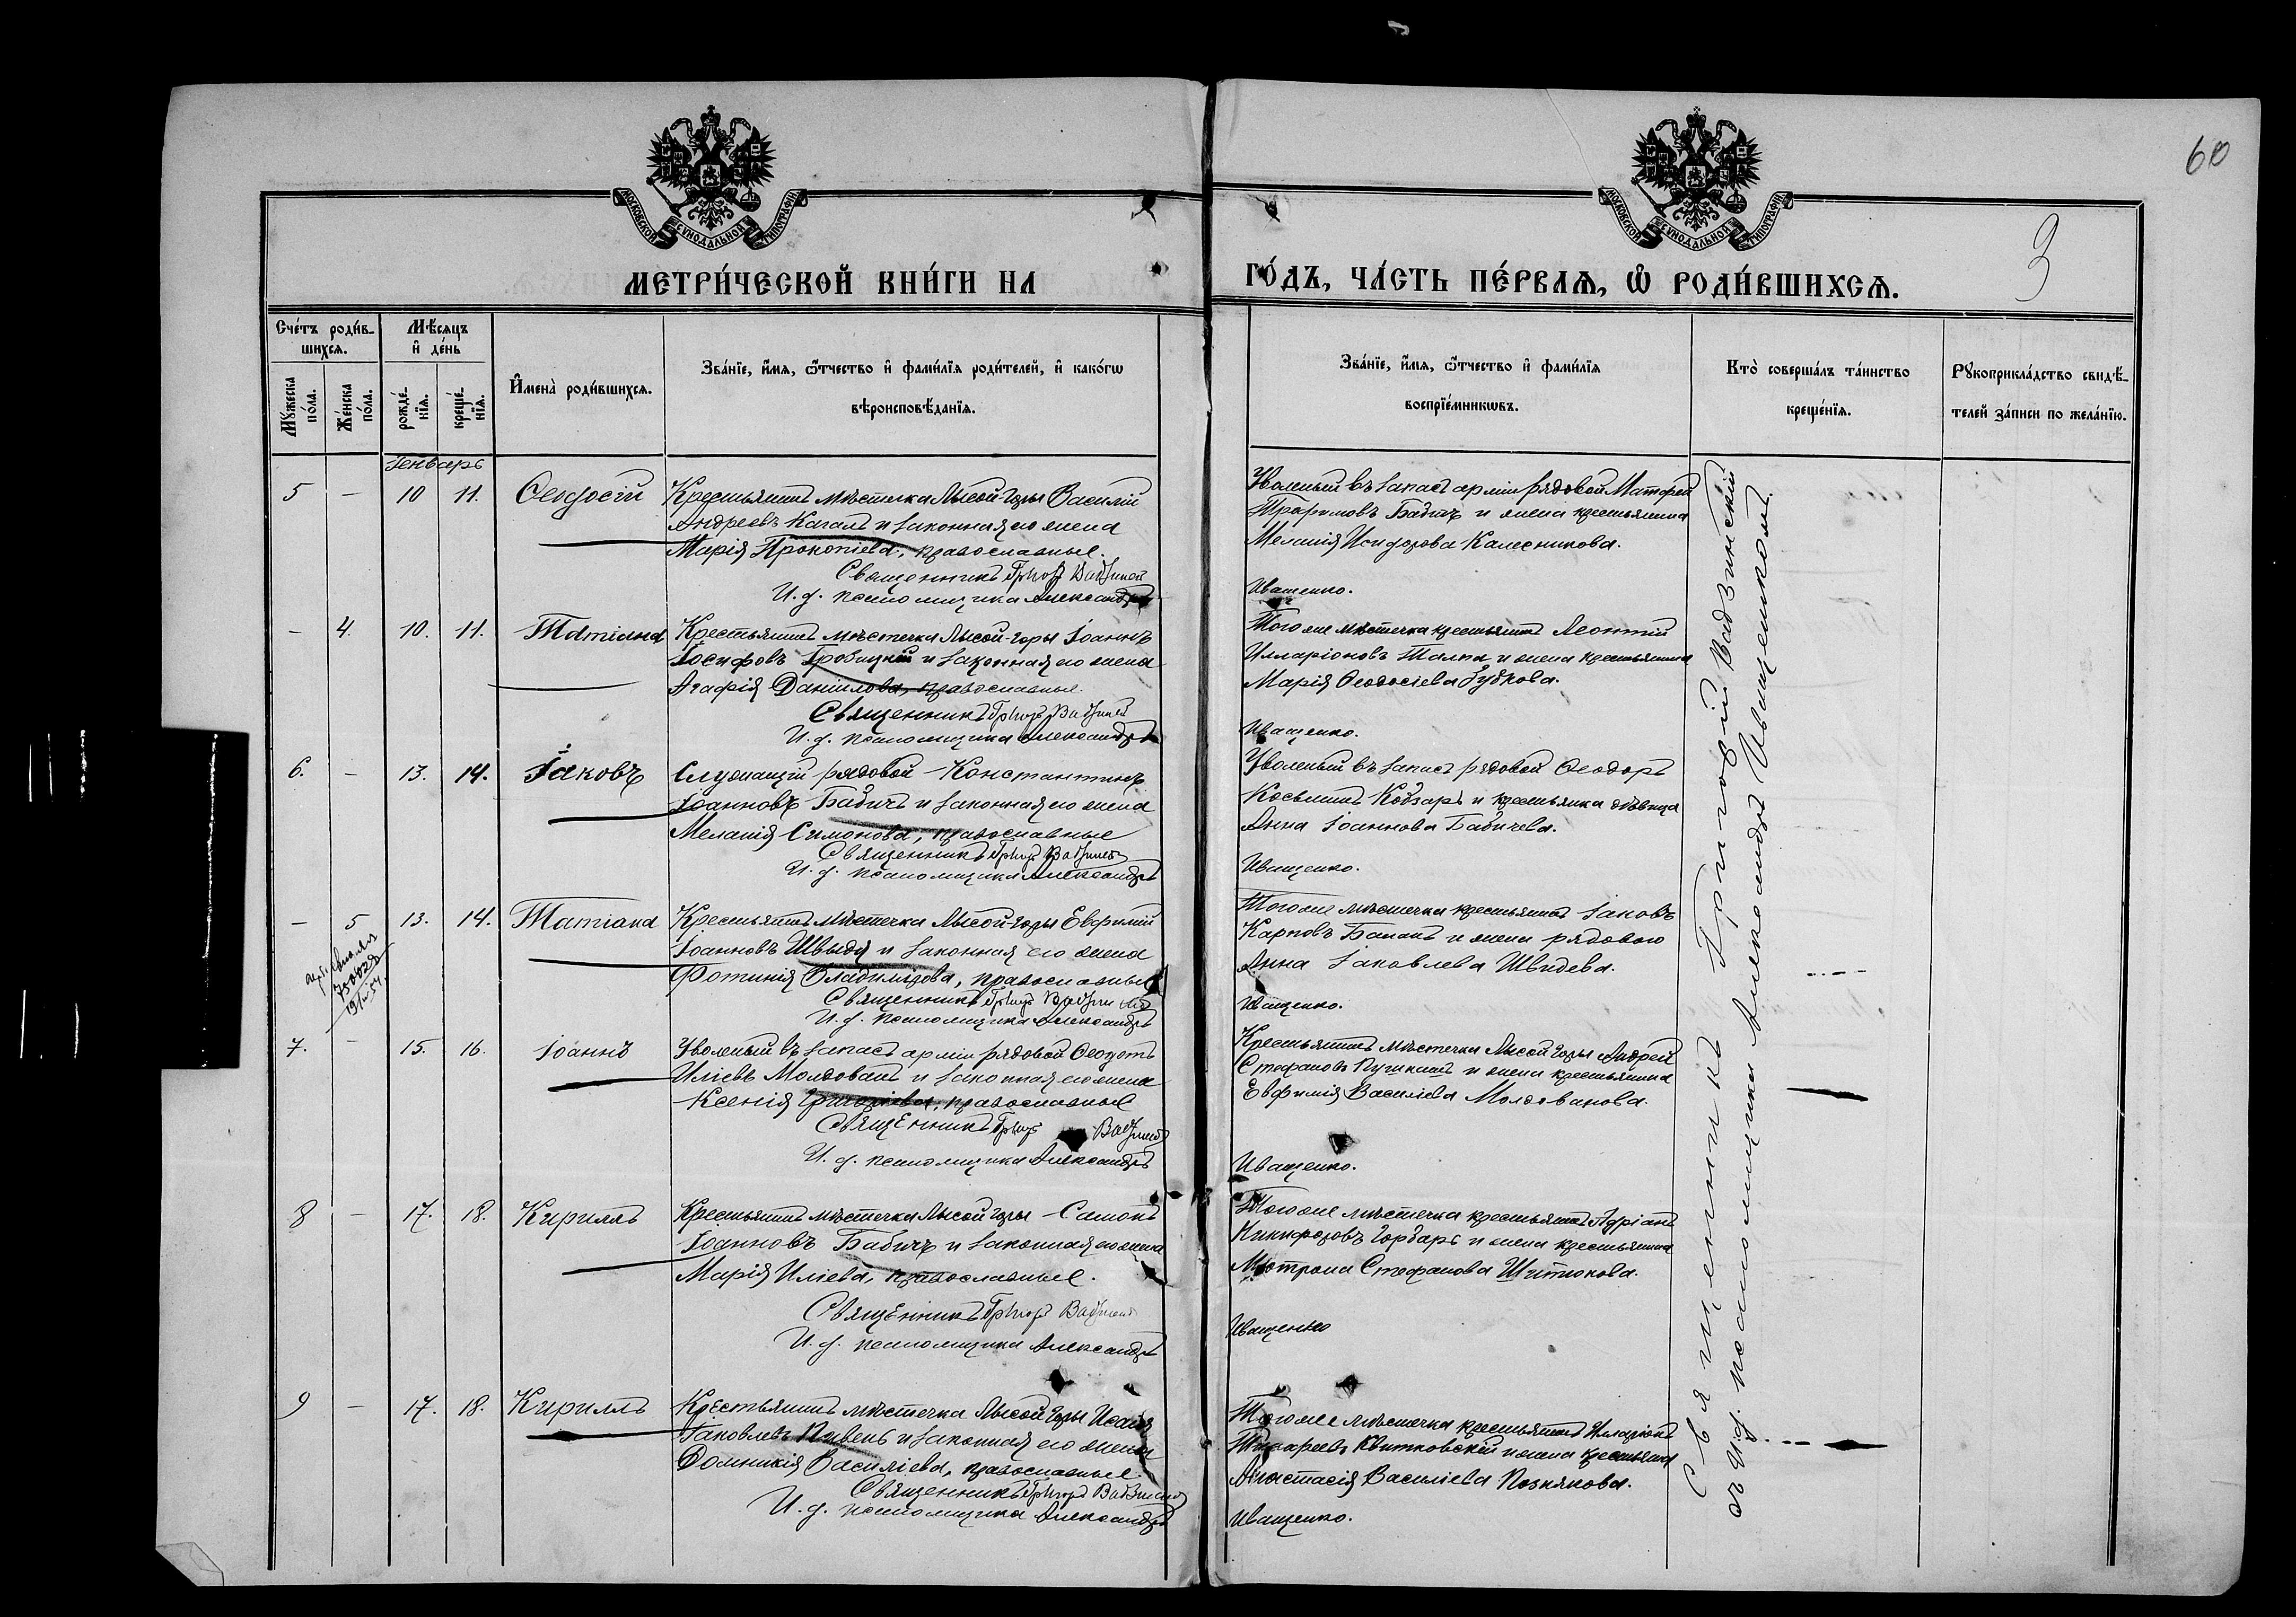 60
МОСКОВСКОЙ СѴНОДАЛЬНОЙ ТИПОГРАФІИ
МОСКОВСКОЙ СѴНОДАЛЬНОЙ ТИПОГРАФІИ
3
МЕТРИ́ЧЕСКОЙ КНИ́ГИ НА
ГО́ДЪ, ЧА́СТЬ ПЕ́РВАѦ, Ѡ҆ РОДИ́ВШИХСѦ.
Сче́тъ роди́в-
шихсѧ.
Мꙋ́жеска по́ла.
Же́нска по́ла.
Мѣ́сѧцъ
и҆ де́нь
рожде́-
нїѧ.
креще́-
нїѧ.
И҆мена̀ роди́вшихсѧ.
Зва́нїе, и҆́мѧ, ѻ҆́тчество и҆ фами́лїѧ роди́телей, и҆ како́гѡ
вѣроисповѣ́данїѧ.
Зва́нїе, и҆́мѧ, ѻ҆́тчество и҆ фами́лїѧ
воспрїе́мникѡвъ.
Кто̀ соверша́лъ та́инство
креще́нїѧ.
Рꙋкоприкла́дство свидѣ́-
телей за́писи по жела́нїю.
Генварь
5 - 10 11. Ѳеодосій
Крестьянинъ мѣстечка Лысой-Горы Василій
Андреевъ Кагалъ и законная его жена
Марія Прокопіева, православные.
Священникъ Григор Вадзинскій
И. д. псаломщика Александръ
Уволеный въ запасъ арміи рядовой Матфей
Трофимовъ Бабичъ и жена крестьянина
Меланія Исидорова Калесникова.
Иващенко.
- 4. 10. 11. Татіана
Крестьянинъ мѣстечка Лысой-Горы Іоаннъ
Іосифовъ Гробицкій и законная его жена
Агафія Даніилова, православные.
Священникъ Григор Вадзинскій
И. д. псаломщика Александръ
Того же мѣстечка крестьянинъ Леонтій
Илларіоновъ Талпа и жена крестьянина
Марія Ѳеодосіева Зубкова.
Иващенко.
6. - 13. 14. Іаковъ
Служащій рядовой Константинъ
Іоанновъ Бабичъ и законная его жена
Меланія Симонова, православные
Священникъ Григор Вадзинскій
И. д. псаломщика Александръ
Уволеный въ запасъ рядовой Ѳеодоръ
Косьминъ Кобзарь и крестьянка дѣвица
Анна Іоаннова Бабичева.
Иващенко.
- 5 13. 14. Татіана
Крестьянинъ мѣстечка Лысой-Горы Евфимій
Іоанновъ Швыдя и законная его жена
Фотинія Владимірова, православные
Священникъ Григор Вадзинскій
И. д. псаломщика Александръ
Того же мѣстечка крестьянинъ Іаковъ
Карповъ Баланъ и жена рядового
Анна Іаковлева Швидева.
Иващенко.
7. - 15. 16. Іоаннъ
Уволеный въ запасъ арміи рядовой Ѳеодотъ
Иліевъ Молдованъ и законная его жена
Ксенія Григоріева, православные
Священникъ Григор Вадзинскій
И. д. псаломщика Александръ
Крестьянинъ мѣстечка Лысой Горы Андрей
Стефановъ Пушкинъ и жена крестьянина
Евфимія Василіева Молдованова.
Иващенко.
8 - 17. 18. Кириллъ
Крестьянинъ мѣстечка Лысой Горы Самонъ
Іоанновъ Бабичъ и законная его жена
Марія Иліева, православные.
Священникъ Григор Вадзинскій
И. д. псаломщика Александръ
Того же мѣстечка крестьянинъ Адріанъ
Никифоровъ Горбарь и жена крестьянина
Мотрона Стефанова Шитикова.
Иващенко
9 - 17. 18. Кириллъ
Крестьянинъ мѣстечка Лысой Горы Исаія
Іаковлевъ Пивень и законная его жена
Домникія Василіева, православные.
Священникъ Григор Вадзинскій
И. д. псаломщика Александръ
Того же мѣстечка крестьянинъ Илларіонъ
Квитковскій и жена крестьянина
Анастасія Василіева Познякова.
Иващенко.
Священникъ Григорій Вадзинскій
съ и. д. псаломщика Александръ Иващенкомъ.